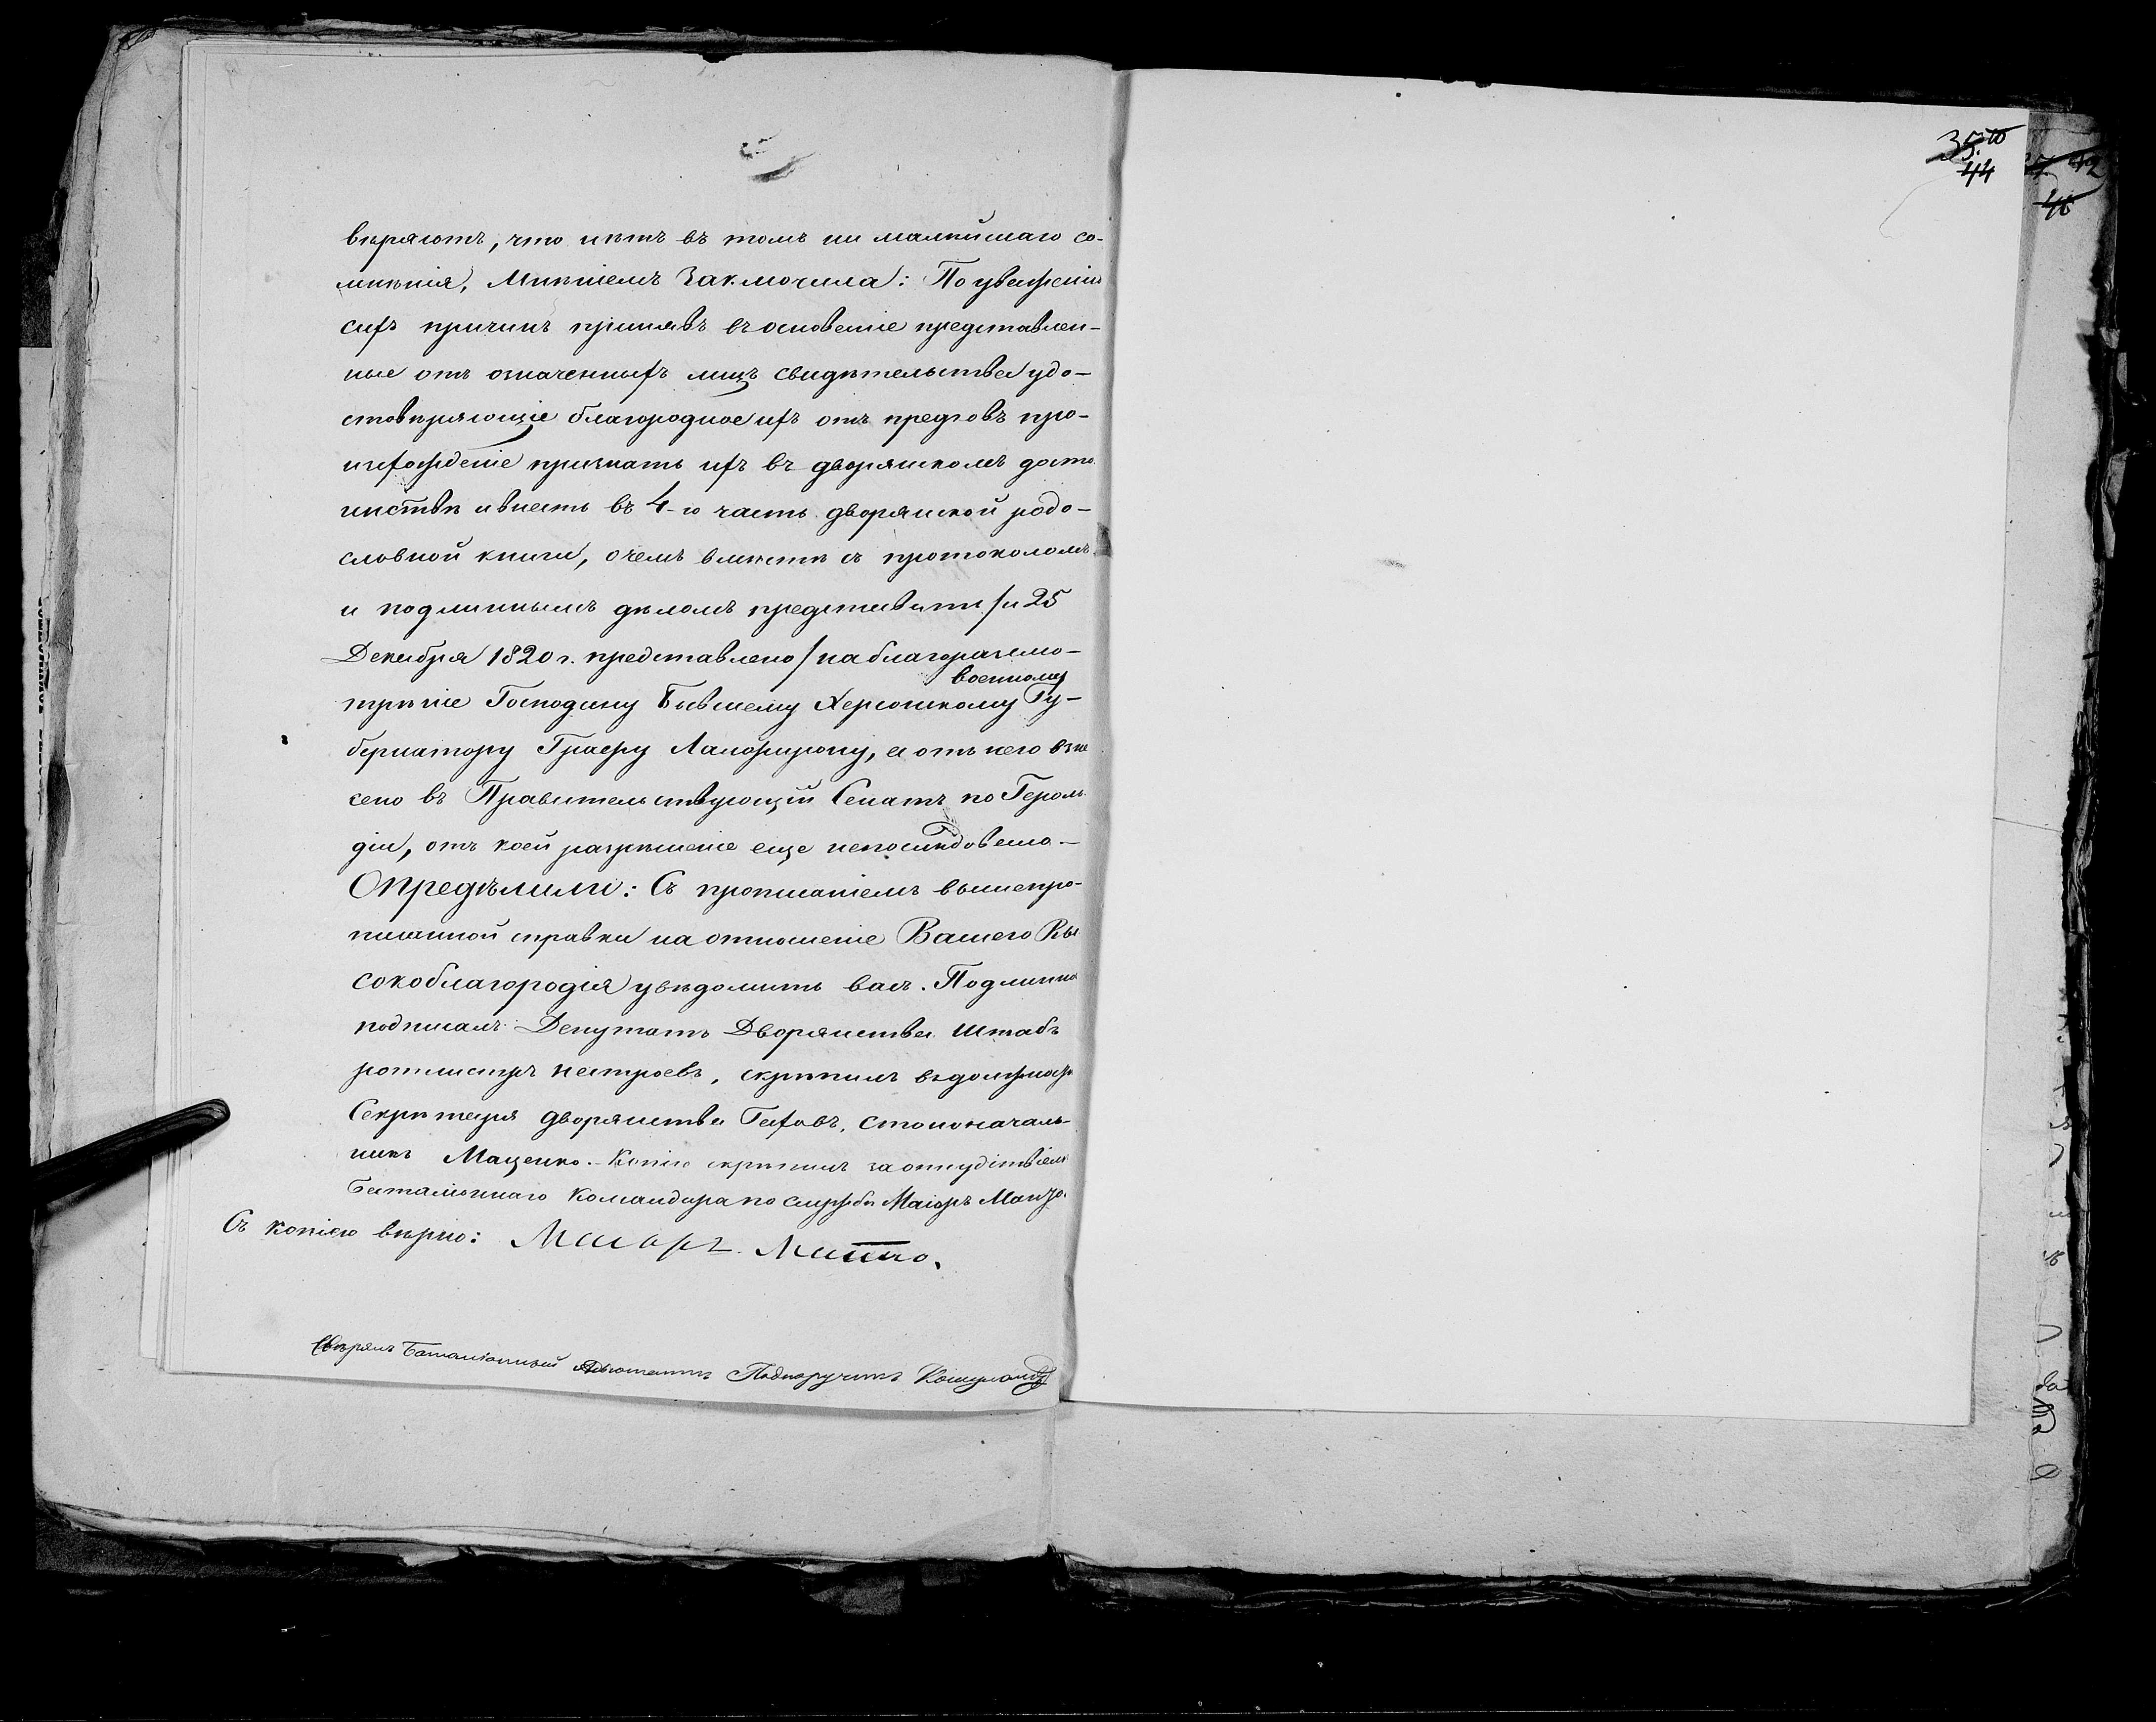 вѣряютъ, что нѣтъ въ томъ ни малѣйшаго со-
мнѣнія, Мнѣніемъ Заключила: По уваженію
сихъ причинъ принявъ въ основаніе представлен-
ные отъ означенныхъ лицъ свидѣтельства удо-
стовѣряющіе благородное ихъ отъ предковъ про-
изхожденіе признать ихъ въ дворянскомъ досто
инствѣ и внесть въ 4-ю часть дворянской родо-
словной книги, о чемъ вмѣстѣ съ протоколомъ
и подлиннымъ дѣломъ представить / и 25
Декабря 1820 г. представлено / на благоразсмо-
военному
трѣніе Господину Бывшему Херсонскому Гу-
бернатору Графу Ланжерону, а отъ него взне
сено въ Правительствующій Сенатъ по Героль
діи, отъ коей разрѣшеніе еще непослѣдовало.—
Опредѣлили: Съ прописаніемъ вышепро-
писанной справки на отношеніе Вашего Вы
сокоблагородія увѣдомить васъ. Подлинно
подписалъ Депутатъ Дворянства Штабъ
ротмистръ Нестроевъ, скрѣпилъ въ должность
Секрѣтаря дворянства Гаховъ, столоначаль-
никъ Маценко.- Копію скрѣпилъ за отсудствіемъ
Баталіоннаго Командира по службѣ Маіоръ
Съ копіею вѣрно: Маіоръ
Свѣрялъ Баталіонный Адъютантъ Подпоручикъ
35
44